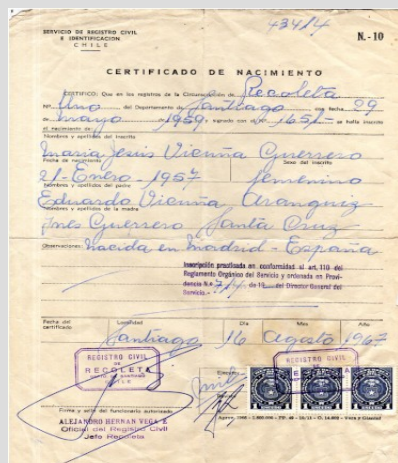 43414
SERVICIO DE REGISTRO CIVIL
E IDENTIFICACION
CHILE
N.- 10
CERTIFICADO DE NACIMIENTO
CERTIFICO: Que en los registros de la Circunscripción de Recoleta
Nº Uno del Departamento de Santiago con fecha 29
de mayo de 1959, signado con el Nº 1651- se halla inscrito
el nacimiento de:
Nombres y apellidos del inscrito
Maria Jesús Vicuña Guerrero
Fecha de nacimiento Sexo del inscrito
21-Enero-1957 femenino
Nombres y apellidos del padre
Eduardo Vicuña Aranguiz
Nombres y apellidos de la madre
Inés Guerrero Santa Cruz
Observaciones: Nacida en Madrid - España
Inscripción practicada en conformidad al art. 110 del
Reglamento Orgánico del Servicio y ordenada en Provi-
dencia N.º de 19 del Director General del
Servicio.-
Fecha del certificado Localidad Día Mes Año
Santiago 16 Agosto 1967
REGISTRO CIVIL
DE
RECOLETA
CHILE
REGISTRO CIVIL
Firma y sello del funcionario autorizado
ALEJANDRO HERNAN VEGA E
Oficial del Registro Civil
Jefe Recoleta